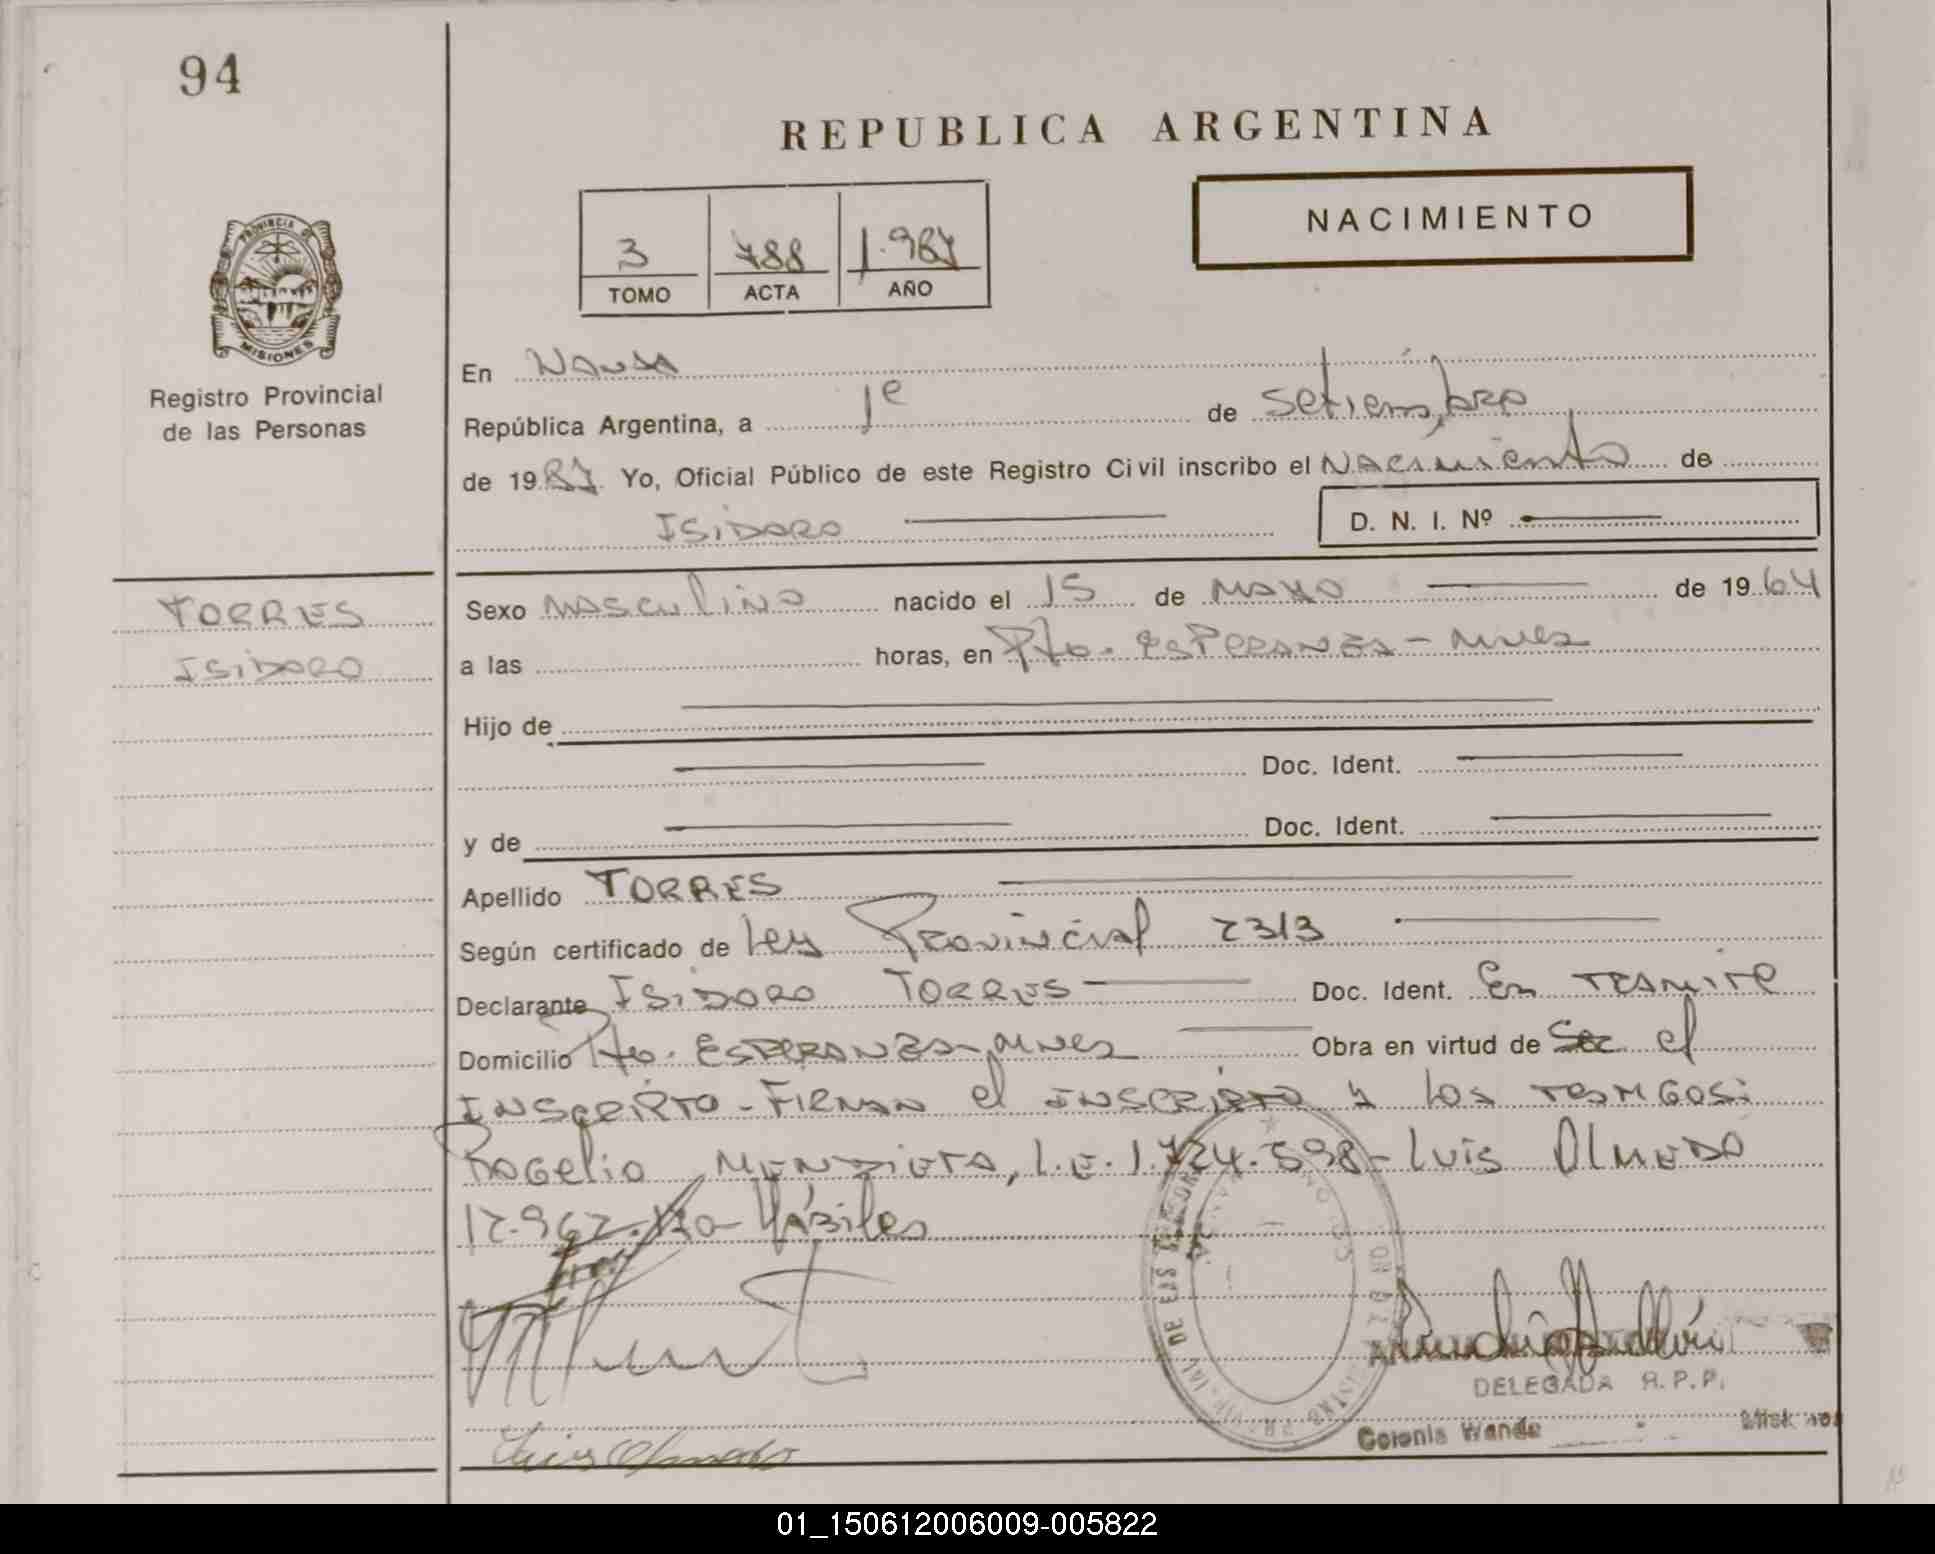 94
REPUBLICA ARGENTINA
NACIMIENTO
3 788 1.987
TOMO ACTA AÑO
PROVINCIA DE
MISIONES
Registro Provincial
de las Personas
En Wanda
República Argentina, a 1º de setiembre
de 1987 Yo, Oficial Público de este Registro Civil inscribo el Nacimiento de
ISIDORO D. N. I. Nº
TORRES
ISIDORO
Sexo masculino nacido el 15 de mayo de 1964
a las horas, en Pto. Esperanza - Mnes
Hijo de
Doc. Ident.
y de Doc. Ident.
Apellido TORRES
Según certificado de Ley Provincial 2313
Declarante ISIDORO TORRES Doc. Ident. En tramite
Domicilio Pto. Esperanza - Mnes Obra en virtud de Ser el
inscripto - Firman el inscripto y los testigos:
Rogelio Mendieta, L.E. 1.724.598 - Luis Olmedo
12.962.120 - Hábiles
Luis Olmedo
DELEGADA R.P.P.
Colonia Wanda Misiones
01_150612006009-005822